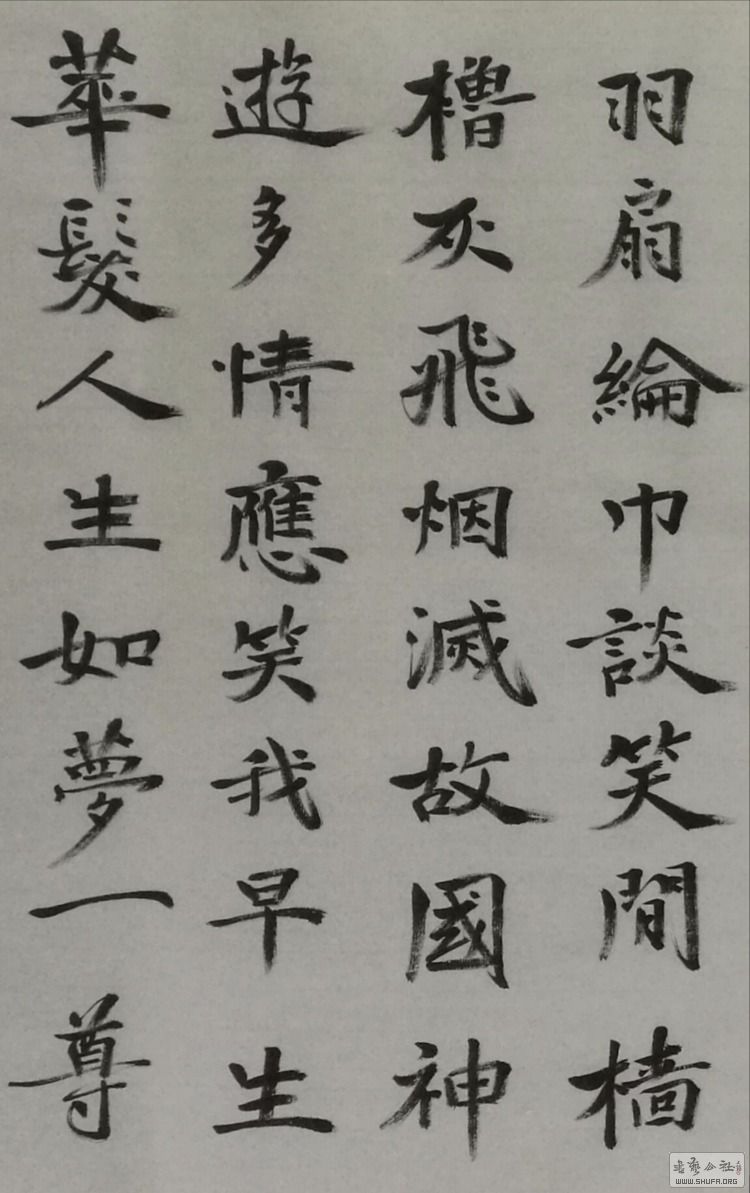 羽扇綸巾談笑間檣
櫓灰飛烟滅故國神
遊多情應笑我早生
華髮人生如夢一尊
WWW.SHUFA.ORG